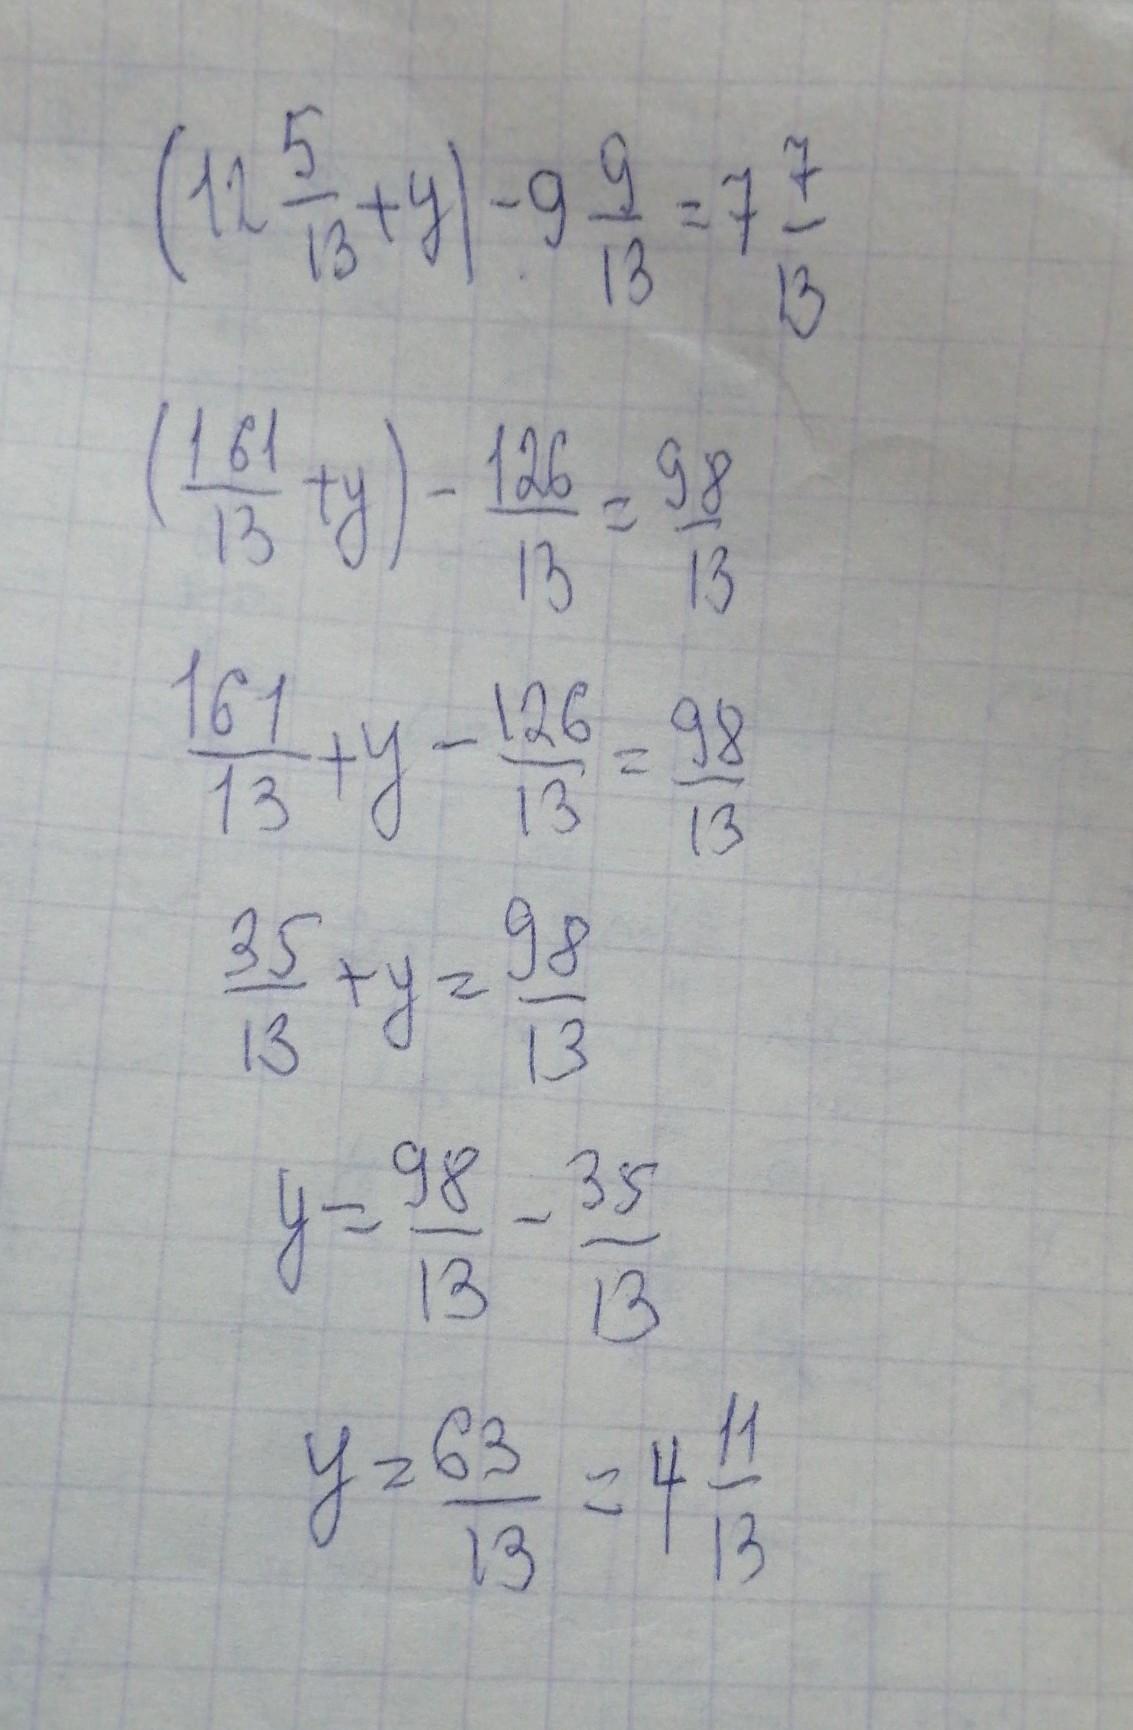 (12 5/13 + y) - 9 9/13 = 7 7/13
(161/13 + y) - 126/13 = 98/13
161/13 + y - 126/13 = 98/13
35/13 + y = 98/13
y = 98/13 - 35/13
y = 63/13 = 4 11/13